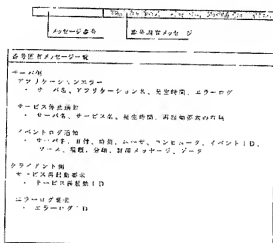 メッセージ番号
番号固有メッセージ
番号固有メッセージ一覧
サーバ側
アプリケーションエラー
・ サーバ名、アプリケーション名、発生時間、エラーログ
サービス停止検出
・ サーバ名、サービス名、発生時間、再起動要求の有無
イベントログ通知
・ サーバ名、日付、時刻、ユーザ、コンピュータ、イベントID、
ソース、種類、分類、説明メッセージ、データ
クライアント側
サービス再起動要求
・ サービス再起動ID
エラーログ要求
・ エラーログID